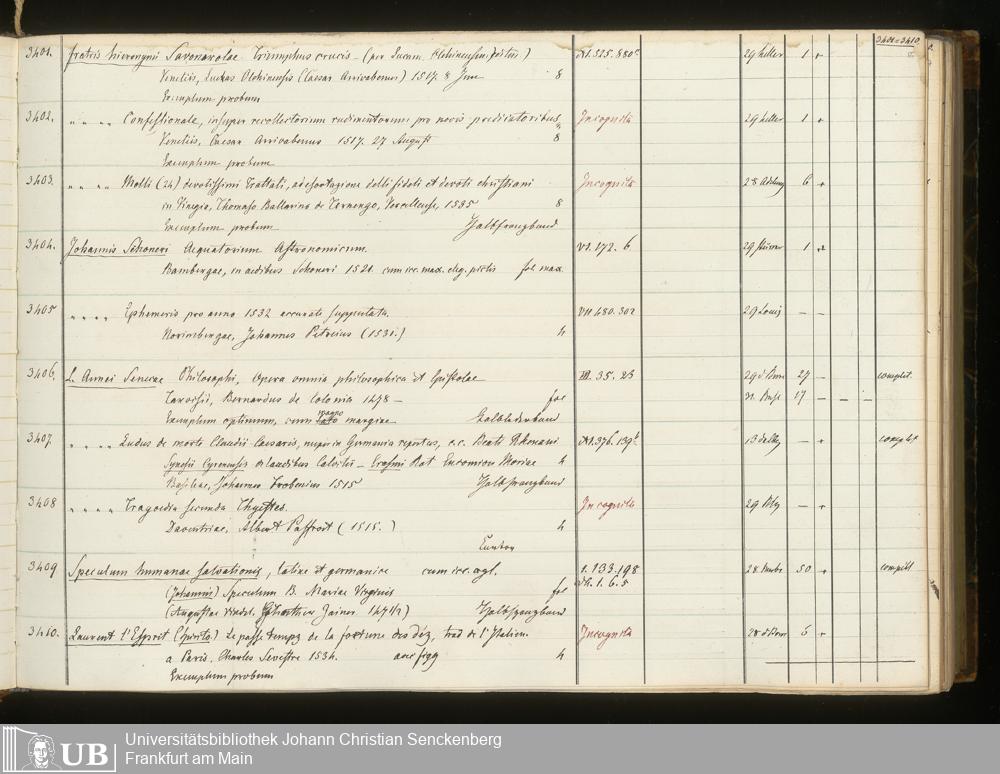 3401=3410
3401. fratris hieronymi Savonarolae Triumphus crucis - (per Lucam Olchinensem ) XI. 525. 880 29 1 +
Venetiis, Lukas Olchinensis (Caesar Arrivabenus) 1517. 8 8
Exemplum probum
3402. " " " " Confessionale, insuper recollectorium rudimentorum pro novis praedicatoribus, Incognita 29 1 +
Venetiis, Caesar Arrivabenus 1517. 27 August 8
Exemplum probum
3403. " " " " Molti (24) devotissimi trattati, ad esortazione delli fideli et devoti christiani Incognita 28 6 +
in Vinegia, Thomaso Ballarino de Ternengo, Vercellense, 1535 8
Exemplum probum Halbfranzband
3404. Johannis Schoneri Aequatorium Astronomicum. VI. 172. 6 29 1 +
Bambergae, in aedibus Schoneri 1521. cum icc. max. eleg. pictis fol max.
3405 " " " " Ephemeris pro anno 1532 accurate supputata. VII 480. 302 29 – –
Norimbergae, Johannes Petreius (1531.) 4
3406. L. Annei Senecae Philosophi, Opera omnia philosophica et Epistolae III. 35. 23 29 27 – complet.
Tarvisii, Bernardus de Colonia 1478 – fol 17 – – –
Exemplum optimum, cum magno margine Halblederband
3407. " " " " Ludus de morte Claudii Caesaris, nuper in Germania repertus, c.c. Beati Rhenani XI. 376. 139 13 – + complet
Synesii Cyrenensis de laudibus Calvitii – Erasmi Rot Encomion Moriae 4
Basileae, Johannes Frobenius 1515 Halbfranzband
3408 " " " " Tragoedia secunda Thyestes. Incognita 29 – +
Daventriae, Albert Paffroit (1515.) 4
3409 Speculum humanae salvationis, latine et germanice cum icc. xyl. 1. 133. 198 28 50 + complet
(Johannis) Speculum B. Mariae Virginis fol 1. 6. 5
(Augustae Vindel. Günther Zainer 1471) Halbfranzband
3410. Laurent l'Esprit (Spirito) Le passe temps de la fortune des dez, trad de l'Italien. Incognita 28 6 +
a Paris. Charles Sevestre 1534. avec figg 4
Exemplum probum
UB
Universitätsbibliothek Johann Christian Senckenberg
Frankfurt am Main